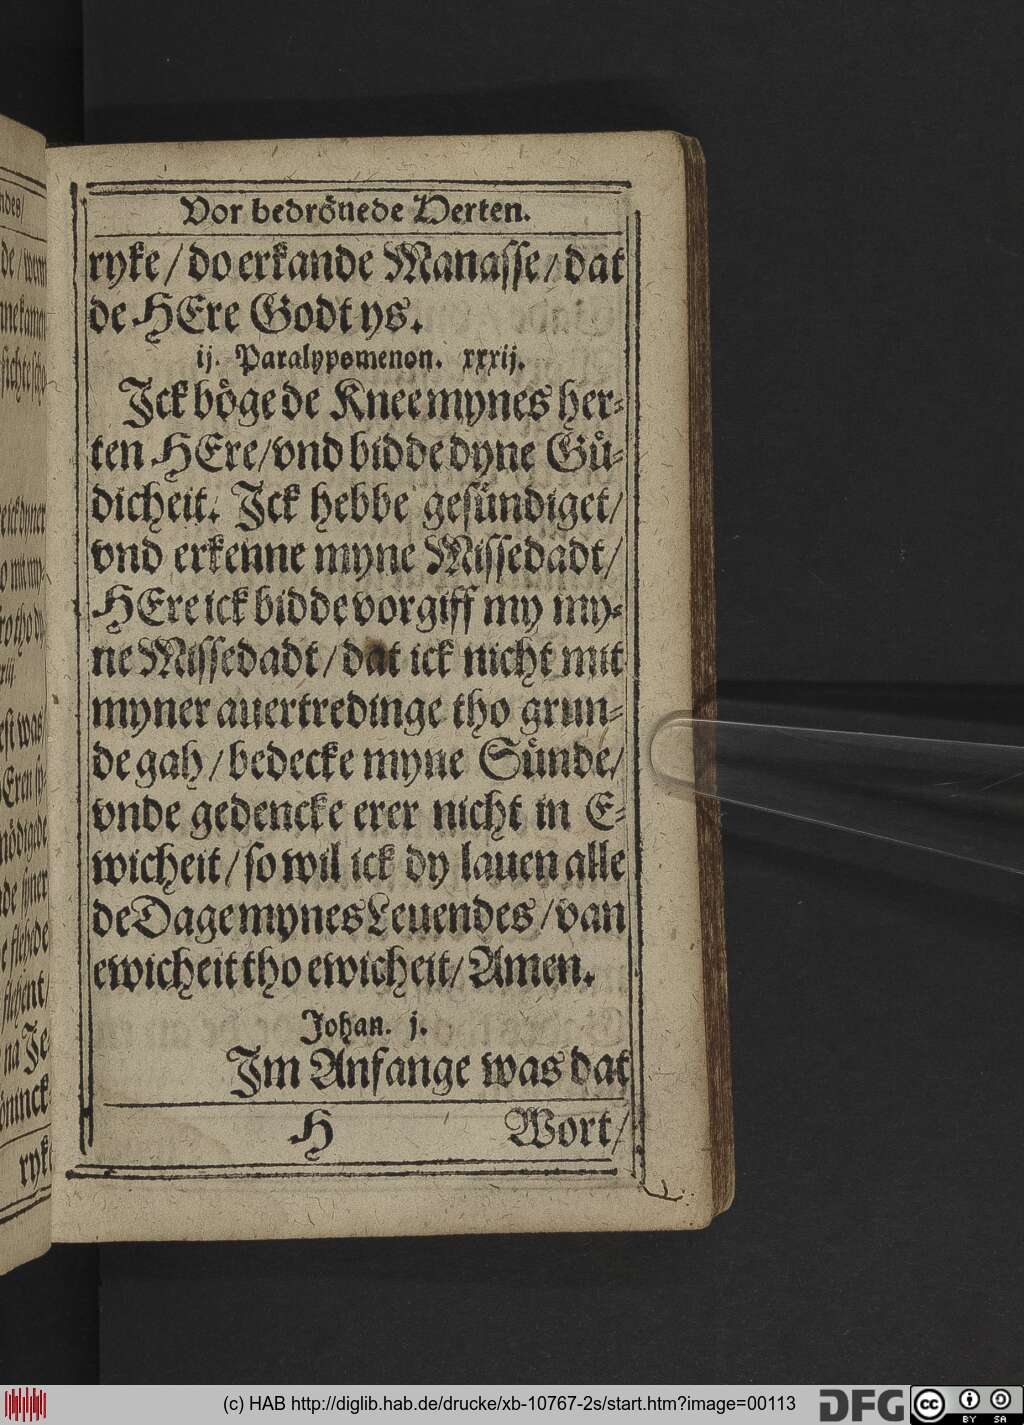 Vor bedröuede Herten.
ryke / do erkande Manasse / dat
de HEre Godt ys.
ij. Paralypomenon. xxxij.
Jck böge de Knee mynes her-
ten HEre / vnd bidde dyne Guͤ-
dicheit. Jck hebbe gesündiget /
vnd erkenne myne Missedadt /
HEre ick bidde vorgiff my my-
ne Missedadt / dat ick nicht mit
myner auertredinge tho grun-
de gah / bedecke myne Sünde /
vnde gedencke erer nicht in E-
wicheit / so wil ick dy lauen alle
de Dage mynes Leuendes / van
ewicheit tho ewicheit / Amen.
Johan. j.
Jm Anfange was dat
H Wort /
(c) HAB http://diglib.hab.de/drucke/xb-10767-2s/start.htm?image=00113
DFG
cc BY SA